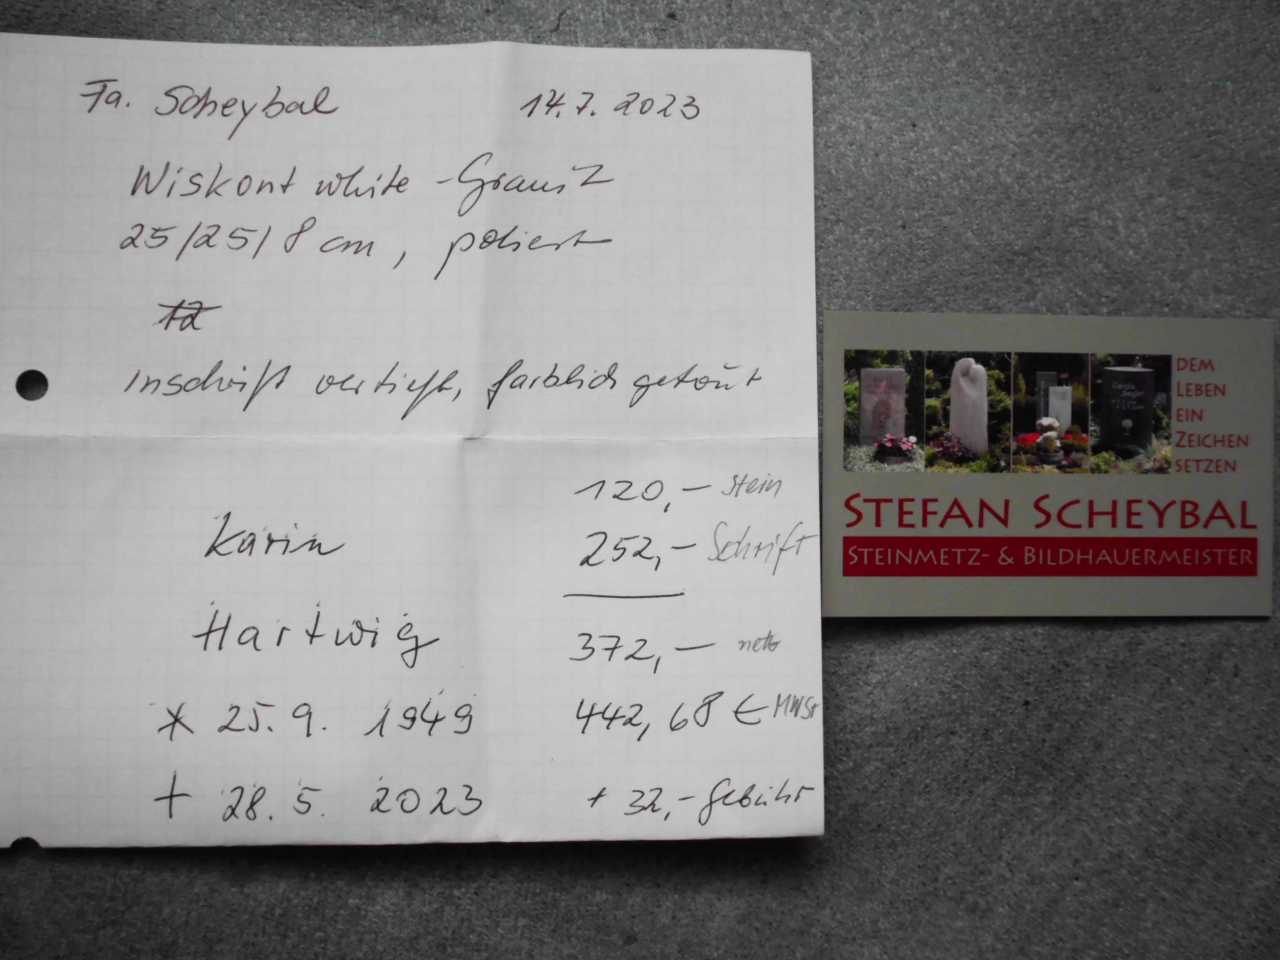 Fa. Scheybal 14.7.2023
Wiskont white - Granit
25/25/8 cm, poliert
12
Inschrift vertieft, farblich getönt
120,- Stein
Karin 252,- Schrift
Hartwig 372,- netto
* 25.9. 1949 442,68 € MWSt
+ 28.5. 2023 + 32,- Gebühr
DEM
LEBEN
EIN
ZEICHEN
SETZEN
STEFAN SCHEYBAL
STEINMETZ- & BILDHAUERMEISTER